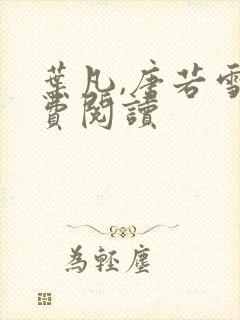 葉凡,唐若雪
費閱讀
為輕塵